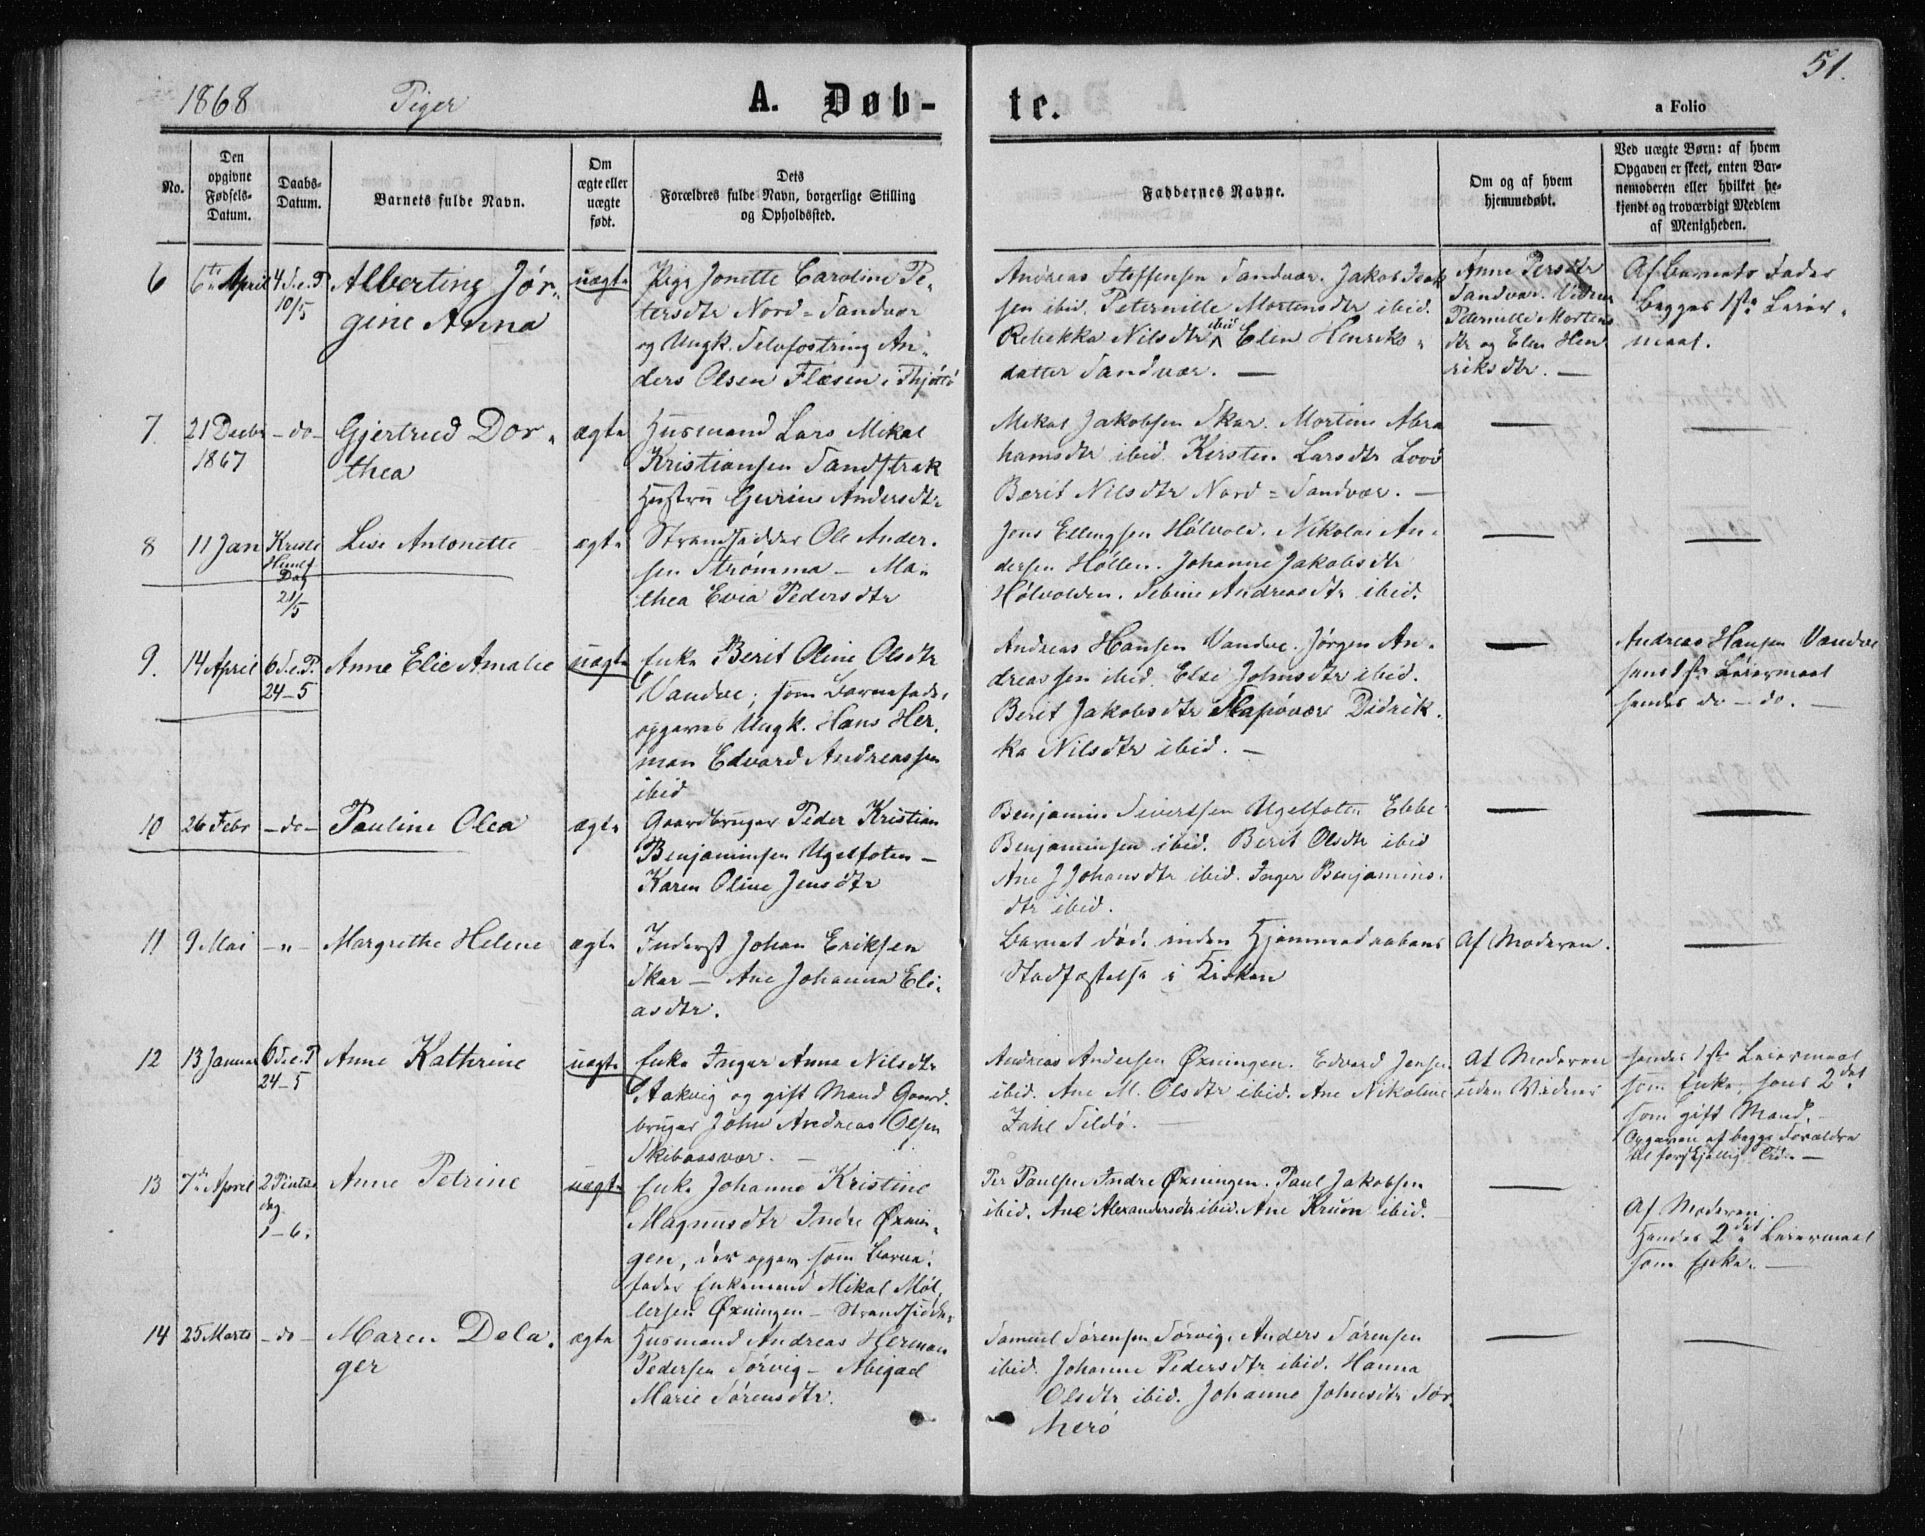 51.
1868 Piger A. Døb- te. a Folio
No.
Den opgivne Fødsels-Datum.
Daabs-Datum.
Barnets fulde Navn.
Om ægte eller uægte født.
Dets Forældres fulde Navn, borgerlige Stilling og Opholdssted.
Faddernes Navne.
Om og af hvem hjemmedøbt.
Ved uægte Børn: af hvem Opgaven er skeet, enten Barnemoderen eller hvilket bekjendt og troværdigt Medlem af Menigheden.
6 6te April 4 S.e.P 10/5
Alberting Jør-
gine Anna
uægte
Pige Jonette Caroline Pe-
tersdtr Nord-Sandvær
og Ungk. Selvfostring An-
ders Olsen Flæsen, Thjøttø
Andreas Steffensen Sandvær. Jakob Isak
sen ibid. Peternille Mortensdtr ibid.
Rebekka Nilsdtr ibid Elen Henriks-
datter Sandvær. —
Anne Persdtr
Sandvær. Vidner
Peternille Mortens
dtr og Elen Hen
riksdtr. —
Af Barnets Fader
begges 1ste Leier-
maal.
7. 21 Decbr 1867 -do-
Gjertrud Dor-
thea
ægte
Husmand Lars Mikal
Kristiansen Sandstrak
Hustru Gurine Andersdtr
Mikal Jakobsen Skar. Mortine Abra
hamsdtr ibid. Kirsten Larsdtr Lovö
Berit Nilsdtr Nord-Sandvær. —
8 11 Jan Kristi Himlf Dag 21/5
Lise Antonette
ægte
Strandsidder Ole Ander-
sen Strømma — Ma-
thea Evea Pedersdtr
Jens Ellingsen Hølvold. Nikolai An-
dersen Høllen. Johanne Jakobsdtr
Hølvolden. Sebine Andreasdtr ibid.
9. 14 April 6 S.e.P. 24-5
Anne Elie Amalie
uægte
Enke Berit Oline Olsdtr
Vandve, som Barnefader
opgaves Ungk. Hans Her-
man Edvard Andreassen
ibid
Andreas Hansen Vandve. Jørgen An-
dreassen ibid. Else Johnsdtr ibid.
Berit Jakobsdtr Slapøvær Didrik-
ka Nilsdtr ibid. —
Andreas Hansen Vandve
hans 1ste Leiermaal
hendes do - do. —
10 26 Febr -do-
Pauline Olea
ægte
Gaardbruger Peder Kristian
Benjaminsen Ugelfoten —
Karen Oline Jensdtr
Benjamin Sivertsen Ugelfoten Ebbe
Benjaminsen ibid. Berit Olsdtr ibid
Ane J Johansdtr ibid. Inger Benjamins-
dtr ibid.
11 9 Mai -"-
Margrethe Helene
ægte
Inderst Johan Eriksen
Skar — Ane Johanna Eli-
asdtr.
Barnet døde inden Hjemmedaabens
Stadfæstelse i Kirken
Af Moderen.
12 13 Januar 6 S.e.P 24-5
Anne Kathrine
uægte
Enke Inger Anna Nilsdtr
Aakvig og gift Mand Gaard-
bruger John Andreas Olsen
Skibaasvær. —
Andreas Andersen Øxningen. Edvard Jensen
ibid. Ane M. Olsdtr ibid. Ane Nikoline
Zahl Sildö.
Af Moderen
uden Vidner
hendes 1ste Leiermaal
som Enke, hans 2det
som gift Mand. —
Opgaven af begge Forældre
til forskjellig Tid. —
13 7de April 2 Pintse dag 1-6.
Anne Petrine
uægte
Enke Johanne Kristine
Magnusdtr Indre Øxnin-
gen, der opgav som Barne-
fader Enkemand Mikal Møl-
lersen Øxningen — Strandsidder
Per Paulsen Indre Øxningen. Paul Jakobsen
ibid. Ane Alexandersdtr ibid. Ane Kruun ibid.
Af Moderen.
Hendes 2det Leiermaal
som Enke. —
14 25 Marts -do-
Maren Dela-
ger
ægte
Husmand Andreas Herman
Pedersen Sørvig — Abigael
Marie Sørensdtr.
Samuel Sørensen Sørvig. Anders Sørensen
ibid. Johanne Pedersdtr ibid. Hanna
Olsdtr ibid. Johanne Johnsdtr Sør
Herö